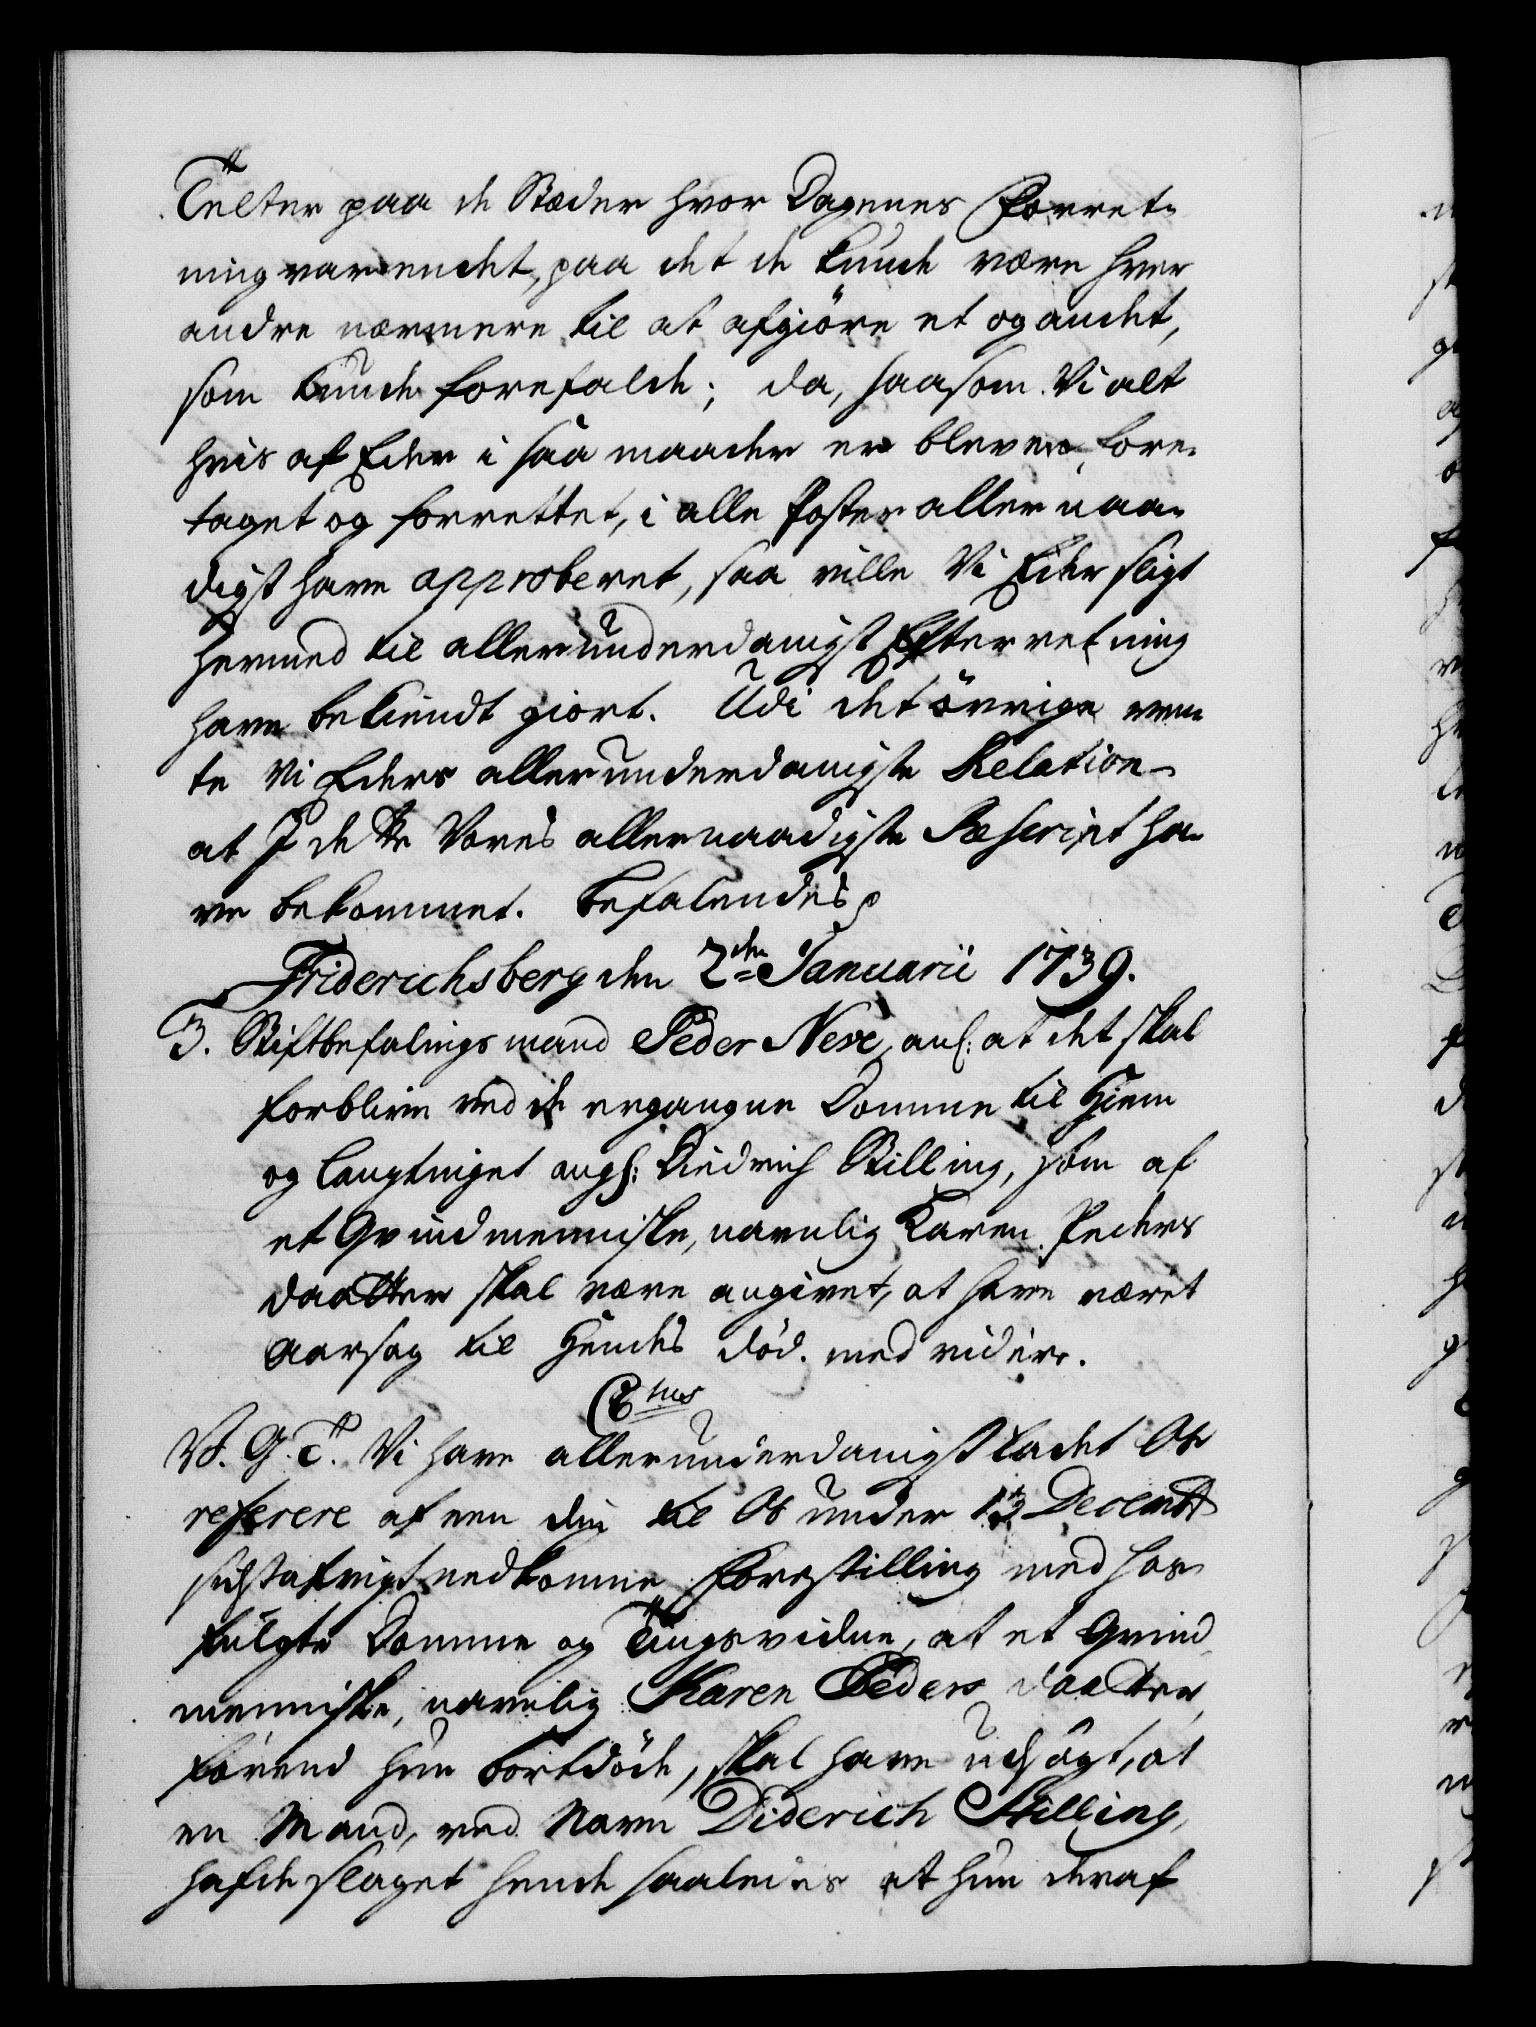 Telter paa de Stæder hvor Dagenes Forret-
ning var endet, paa det de kunde være hver
andre nærmere til at afgiöre et og andet,
som kunde forefalde; da, saasom Vi alt
hvis af Eder i saa maader er bleven fore-
taget og forrettet, i alle Poster allernaa-
digst have approberet, saa ville Vi Eder sligt
hermed til allerunderdanigst Efterretning
have bekiendt giort. Udi det övrige ven-
te Vi Eders allerunderdanigste Relation
at I dette Vores allernaadigste Rescript ha-
ve bekommet. Befalendes
Friderichsberg den 2den Januarii 1739.
3. Stiftbefalingsmand Peder Neve, anl: at det skal
forblive ved de ergangne Domme til Hiem
og Laugtinget angl: Diedrich Stilling, som af
et Qvindmenniske, navnlig Karen Peders
daatter skal være angivet, at have været
Aarsag til Hendes död. med videre.
C 6tus
V. G. T. Vi have allerunderdanigst ladet Os
referere af een din til Os under 13 Decembr
sidstafvigt nedkomne Forestilling med hos-
fulgte Domme og Tingsvidne, at et Qvind-
menniske, navnlig Karen Peders daatter,
förend hun bortdöde, skal have udsagt, at
en Mand, ved Navn Diderich Stilling,
hafde slaget hende saaledes at hun deraf